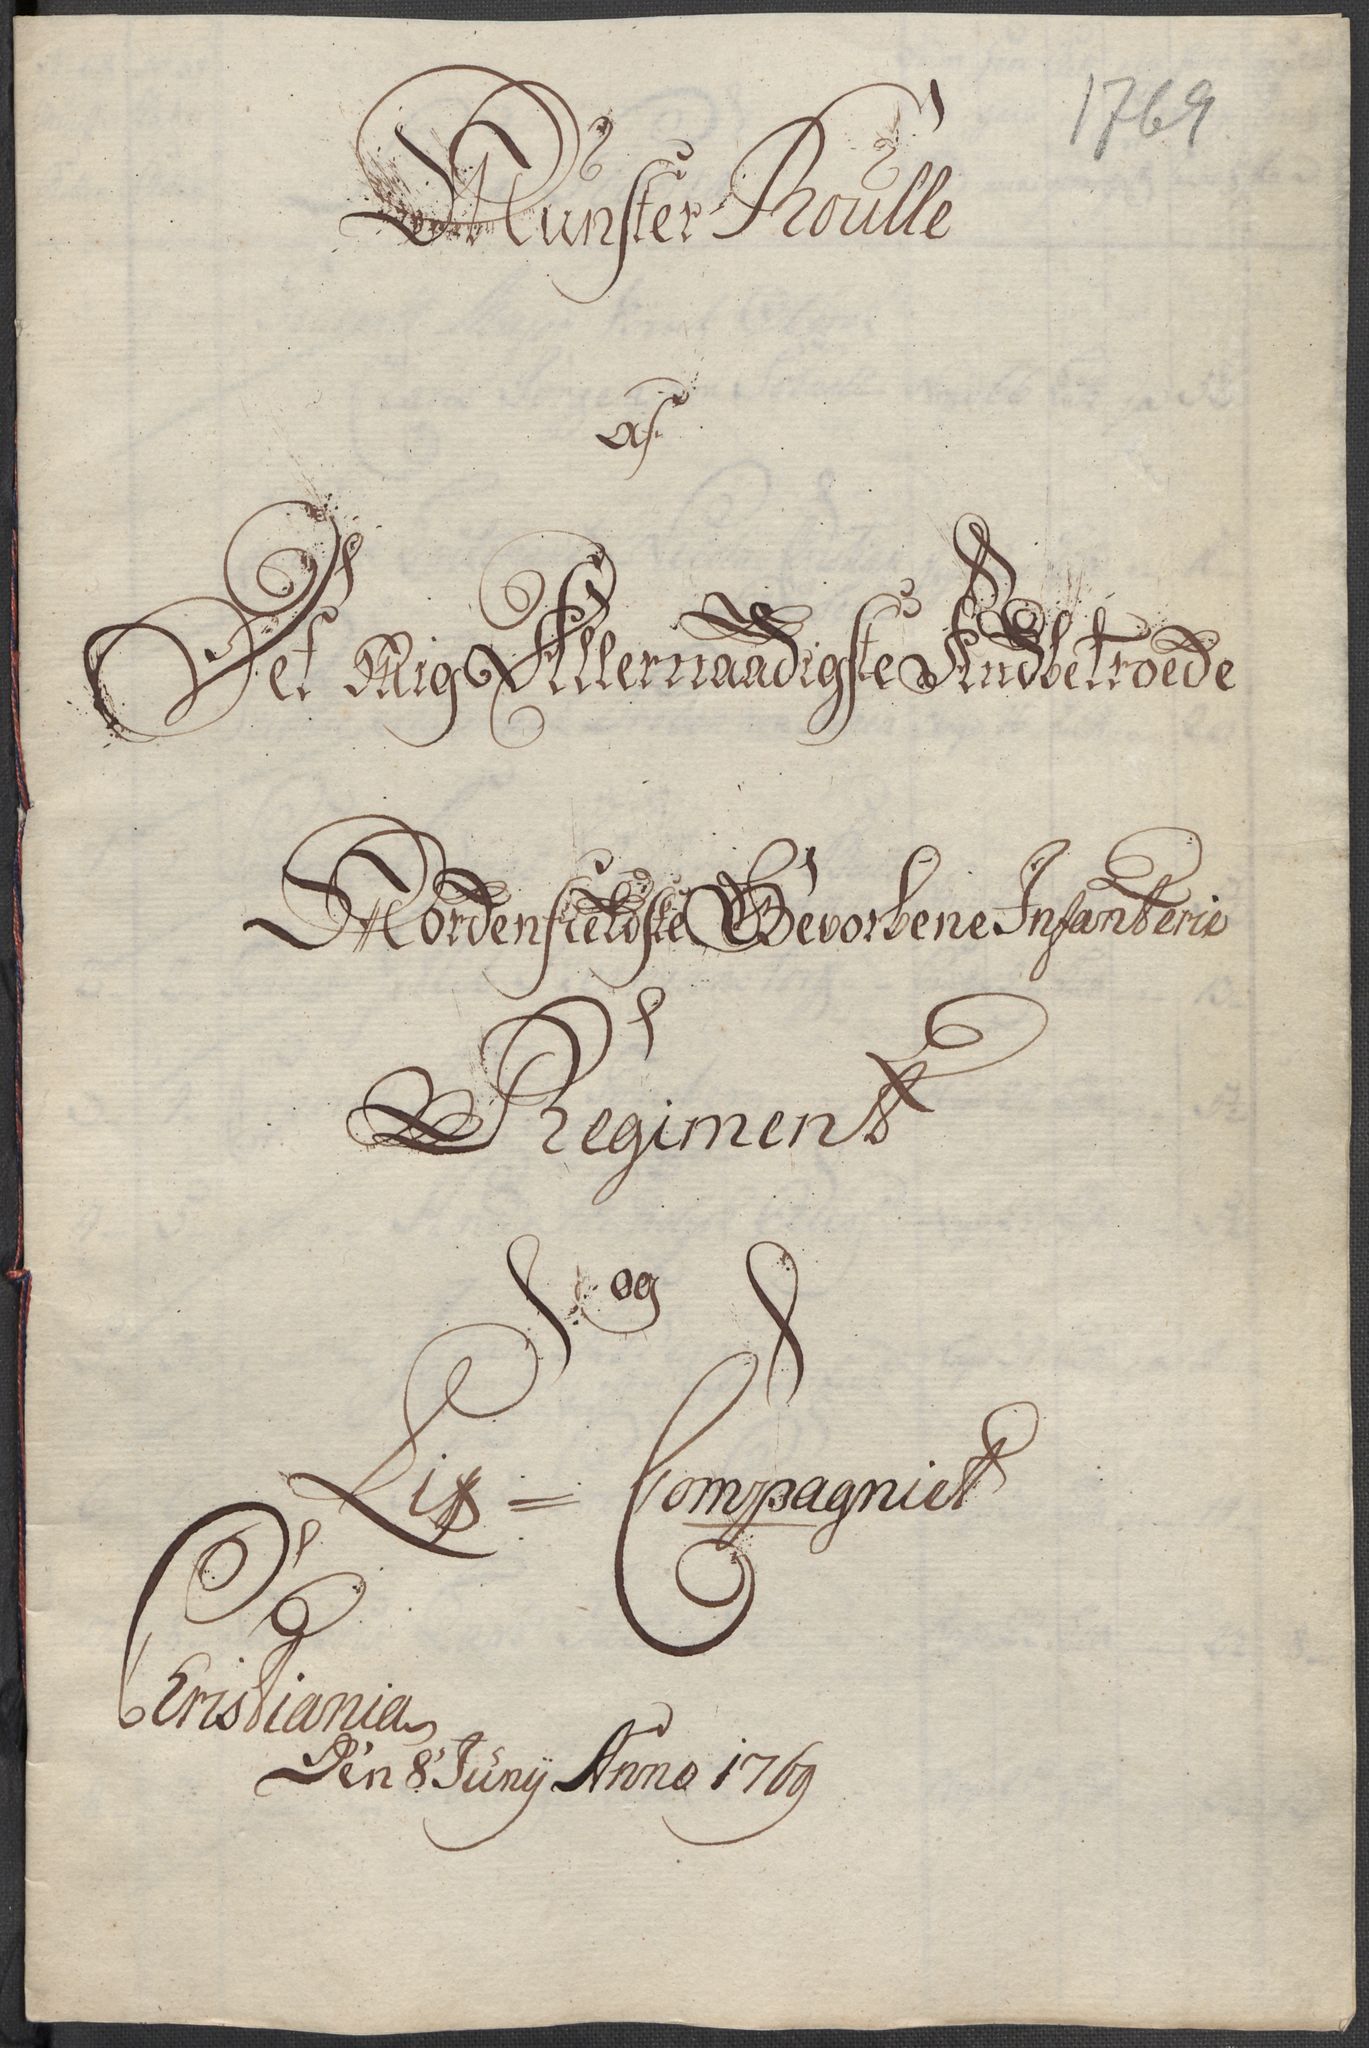 1769
Munster Roulle
af
Det Mig Allernaadigste Andbetroede
Nordenfieldske Gevorbene Infanterie
Regiment
og
Lif = Compagniet
Christiania
Den 8' Juny Anno 1769